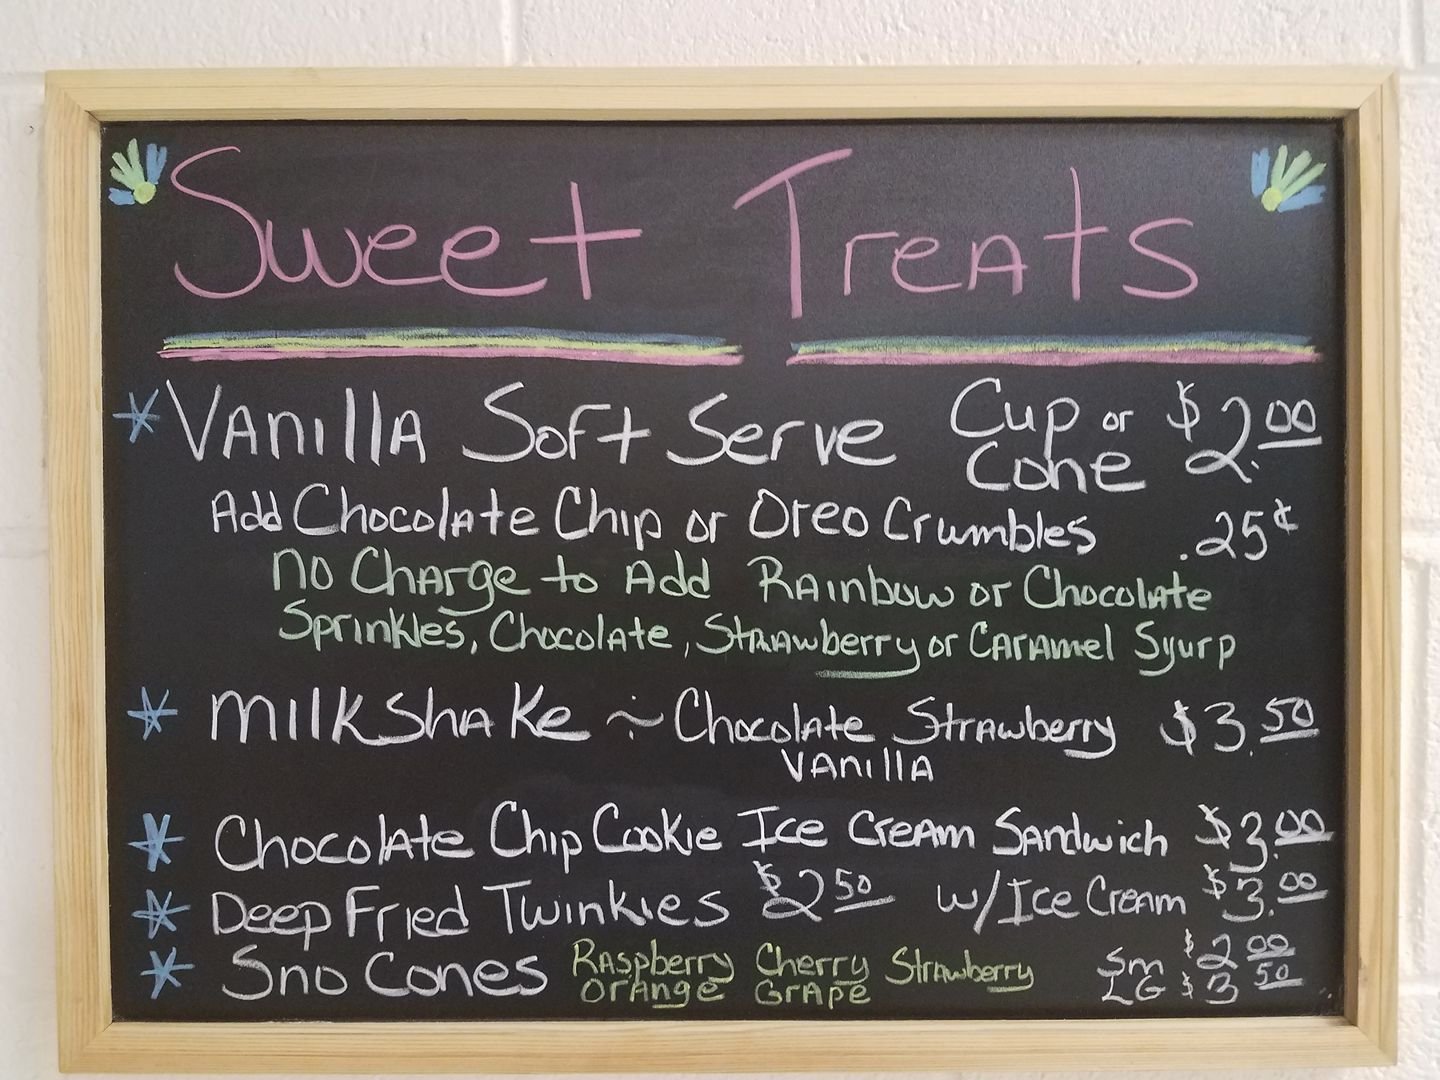 Sweet Treats
* Vanilla Soft Serve Cup or Cone $2.00
Add Chocolate Chip or Oreo Crumbles .25¢
No Charge to Add Rainbow or Chocolate
Sprinkles, Chocolate, Strawberry or Caramel Syurp
* Milkshake ~ Chocolate Strawberry $3.50
Vanilla
* Chocolate Chip Cookie Ice Cream Sandwich $3.00
* Deep Fried Twinkies $2.50 w/Ice Cream $3.00
* Sno Cones Raspberry Cherry Strawberry Sm $2.00
Orange Grape LG $3.50